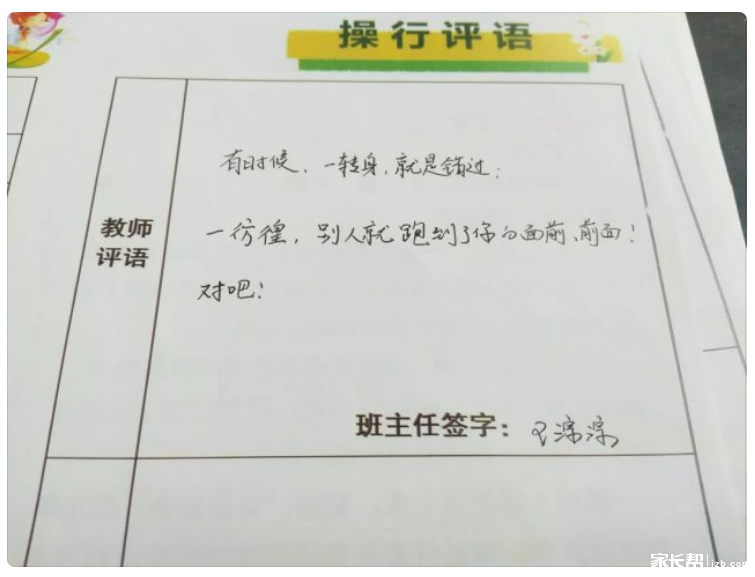 操行评语
教师
评语
有时候，一转身，就是错过；
一彷徨，别人就跑到了你的面前、前面！
对吧！
班主任签字：
家长帮 jzb.com